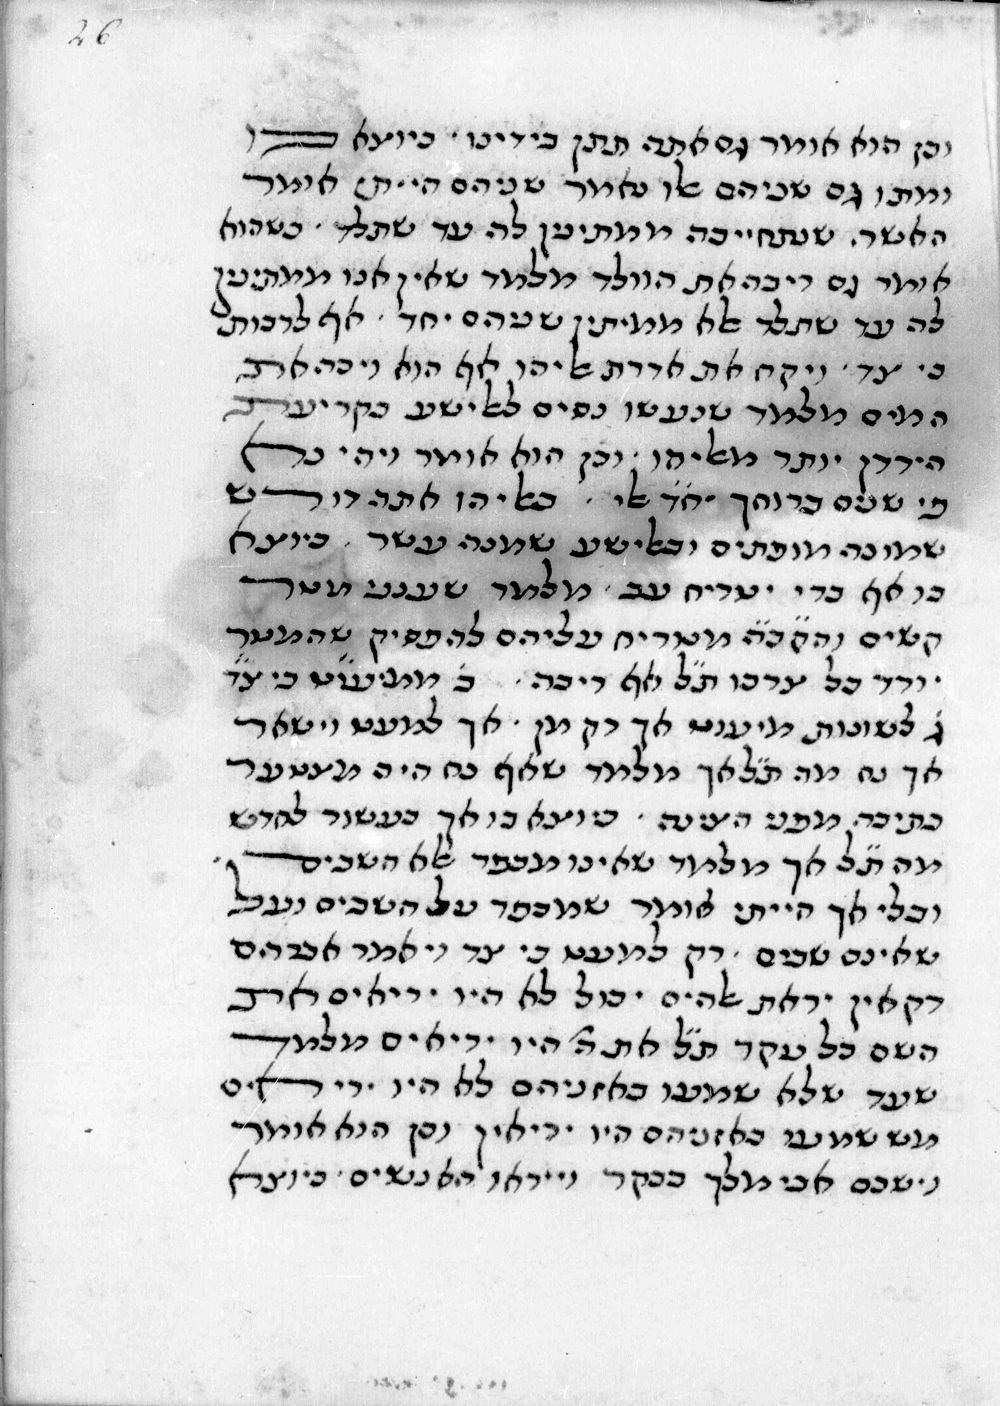 26
וכן הוא אומר גם אתה תתן בידינו · כיוצא בו
ומתו גם שניהם אלו נאמר שניהם הייתי אומר
האשה שנתחייבה ממתינין לה עד שתלד · כשהוא
אומר גם ריבה את הוולד מלמד שאין אנו ממתינין
לה עד שתלד אלא ממיתין שניהם יחד · אף לרבות
כי צד · ויקח את אדרת אליהו אף הוא ויכה את
המים מלמד שנעשו נסים לאלישע בקריעת
הירדן יותר מאליהו · וכן הוא אומר ויהי נא
פי שנים ברוחך אלי · באליהו אתה דורש
שמונה מופתים ובאלישע ששה עשר · כיוצא
בו אף ברי יטריח עב · מלמד שענני מטר
קשים והק״בה מטריח עליהם להפסיק שהמטר
יורד כל צרכו ת״ל אף ריבה · ג׳ ממיעוט כי צד
ג׳ לשונות מיעוט אך רק מן · אך למעט וישאר
אך נח מה ת״ל אך מלמד שאף נח היה מצטער
בתיבה מפני הצינה · כיוצא בו אך בעשור לחדש
מה ת״ל אך מלמד שאינו מכפר אלא השבים ·
ובלי אך הייתי אומר שמכפר על השבים ועל
שאינם שבים · רק למעט כי צד ויאמר אברהם
רק אין יראת אלהים יכול לא היו יריאים את
השם כל עקר ת״ל את ה׳ היו יריאים מלמד
שעד שלא שמעו באזניהם לא היו יריאים
מששמעו באזניהם היו יריאין וכן הוא אומר
וישכם אבימלך בבקר וייראו האנשים · כיוצא